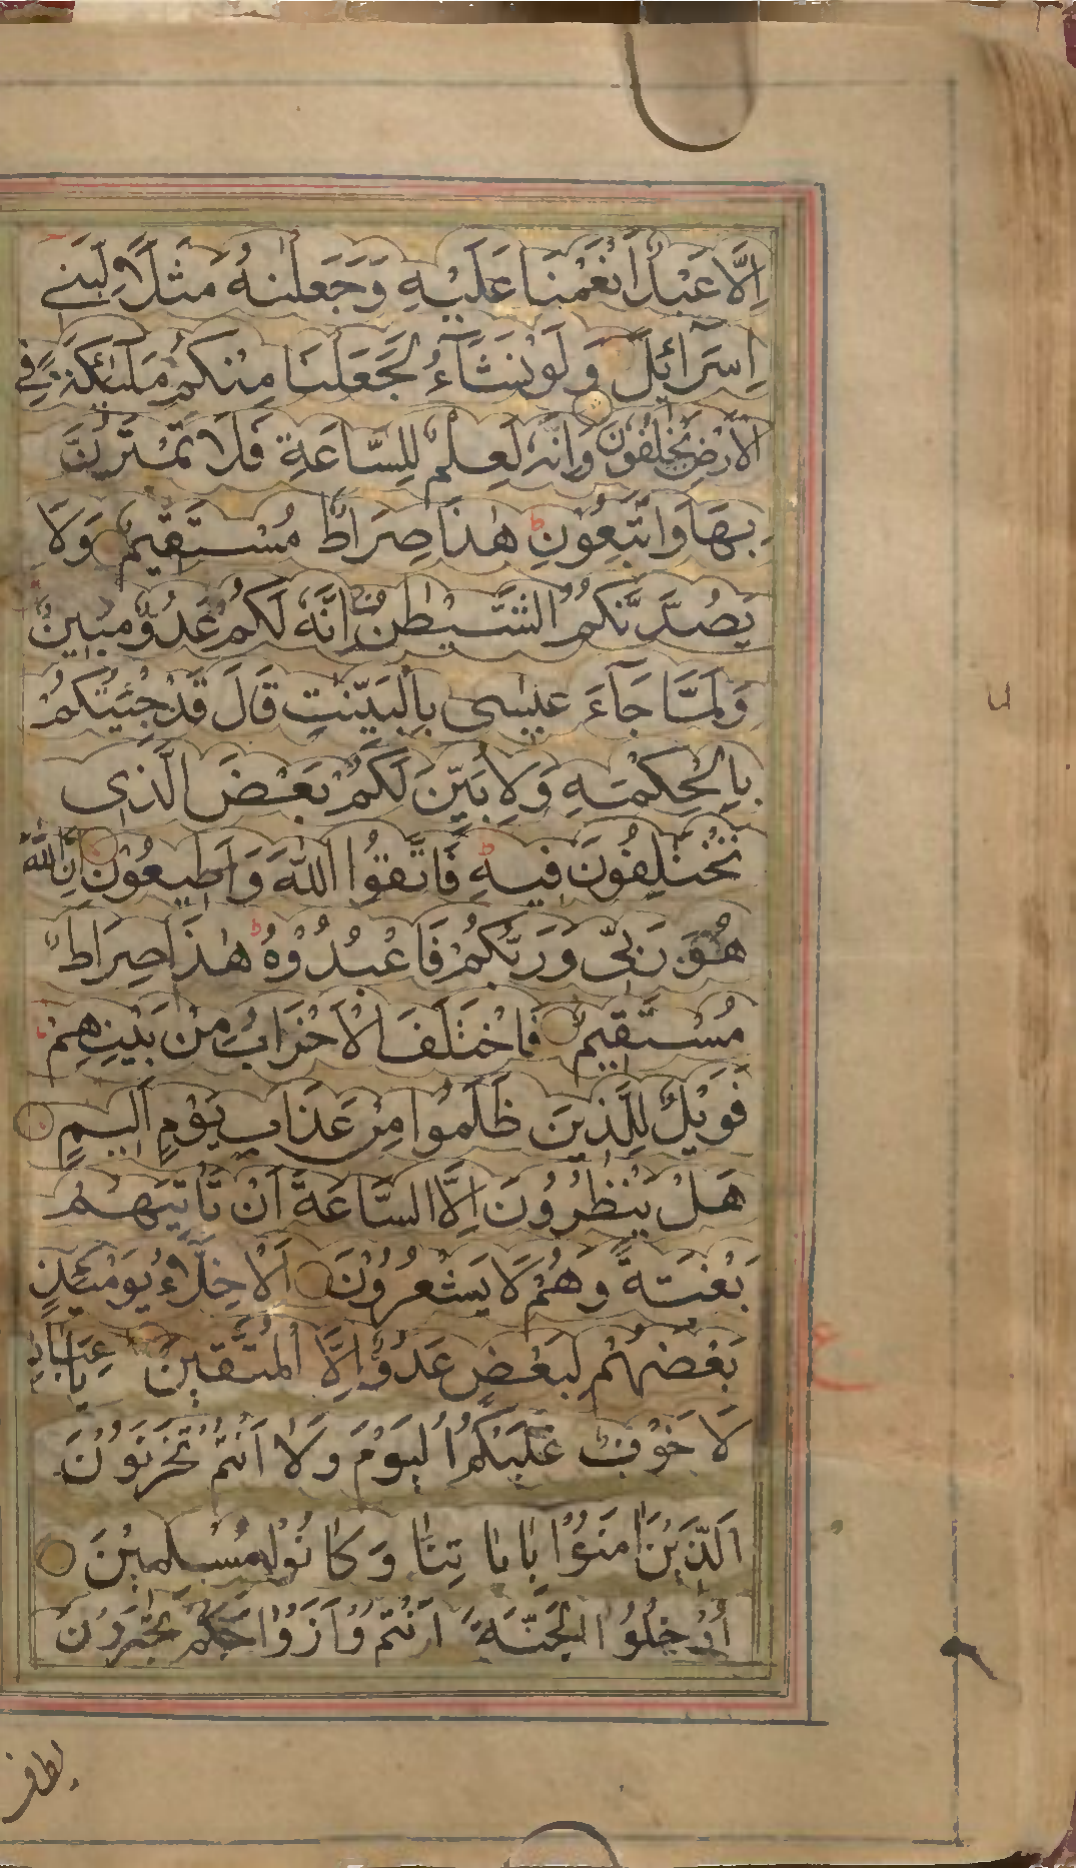 اِلَّا عَبْدٌ اَنْعَمْنَا عَلَيْهِ وَجَعَلْنٰهُ مَثَلًا لِّبَنِیْ
اِسْرَآئِيْلَ وَلَوْ نَشَآءُ لَجَعَلْنَا مِنْكُمْ مَلٰٓئِكَةً فِی
الْاَرْضِ يَخْلُفُوْنَ وَاِنَّهٗ لَعِلْمٌ لِّلسَّاعَةِ فَلَا تَمْتَرُنَّ
بِهَا وَاتَّبِعُوْنِ ط هٰذَا صِرَاطٌ مُّسْتَقِيْمٌ وَلَا
يَصُدَّنَّكُمُ الشَّيْطٰنُ اِنَّهٗ لَكُمْ عَدُوٌّ مُّبِيْنٌ
وَلَمَّا جَآءَ عِيْسٰى بِالْبَيِّنٰتِ قَالَ قَدْ جِئْتُكُمْ
بِالْحِكْمَةِ وَلِاُبَيِّنَ لَكُمْ بَعْضَ الَّذِی
تَخْتَلِفُوْنَ فِيْهِ ط فَاتَّقُوا اللّٰهَ وَاَطِيْعُوْنِ اِنَّ اللّٰهَ
هُوَ رَبِّیْ وَرَبُّكُمْ فَاعْبُدُوْهُ ط هٰذَا صِرَاطٌ
مُّسْتَقِيْمٌ فَاخْتَلَفَ الْاَحْزَابُ مِنْ بَيْنِهِمْ
فَوَيْلٌ لِّلَّذِيْنَ ظَلَمُوْا مِنْ عَذَابِ يَوْمٍ اَلِيْمٍ
هَلْ يَنْظُرُوْنَ اِلَّا السَّاعَةَ اَنْ تَاْتِيَهُمْ
بَغْتَةً وَّهُمْ لَا يَشْعُرُوْنَ اَلْاَخِلَّآءُ يَوْمَئِذٍ
بَعْضُهُمْ لِبَعْضٍ عَدُوٌّ اِلَّا الْمُتَّقِيْنَ يَا عِبَادِ
ع
لَا خَوْفٌ عَلَيْكُمُ الْيَوْمَ وَلَا اَنْتُمْ تَحْزَنُوْنَ
اَلَّذِيْنَ اٰمَنُوْا بِاٰيَاتِنَا وَكَانُوْا مُسْلِمِيْنَ
اُدْخُلُوا الْجَنَّةَ اَنْتُمْ وَاَزْوَاجُكُمْ تُحْبَرُوْنَ
يطاف